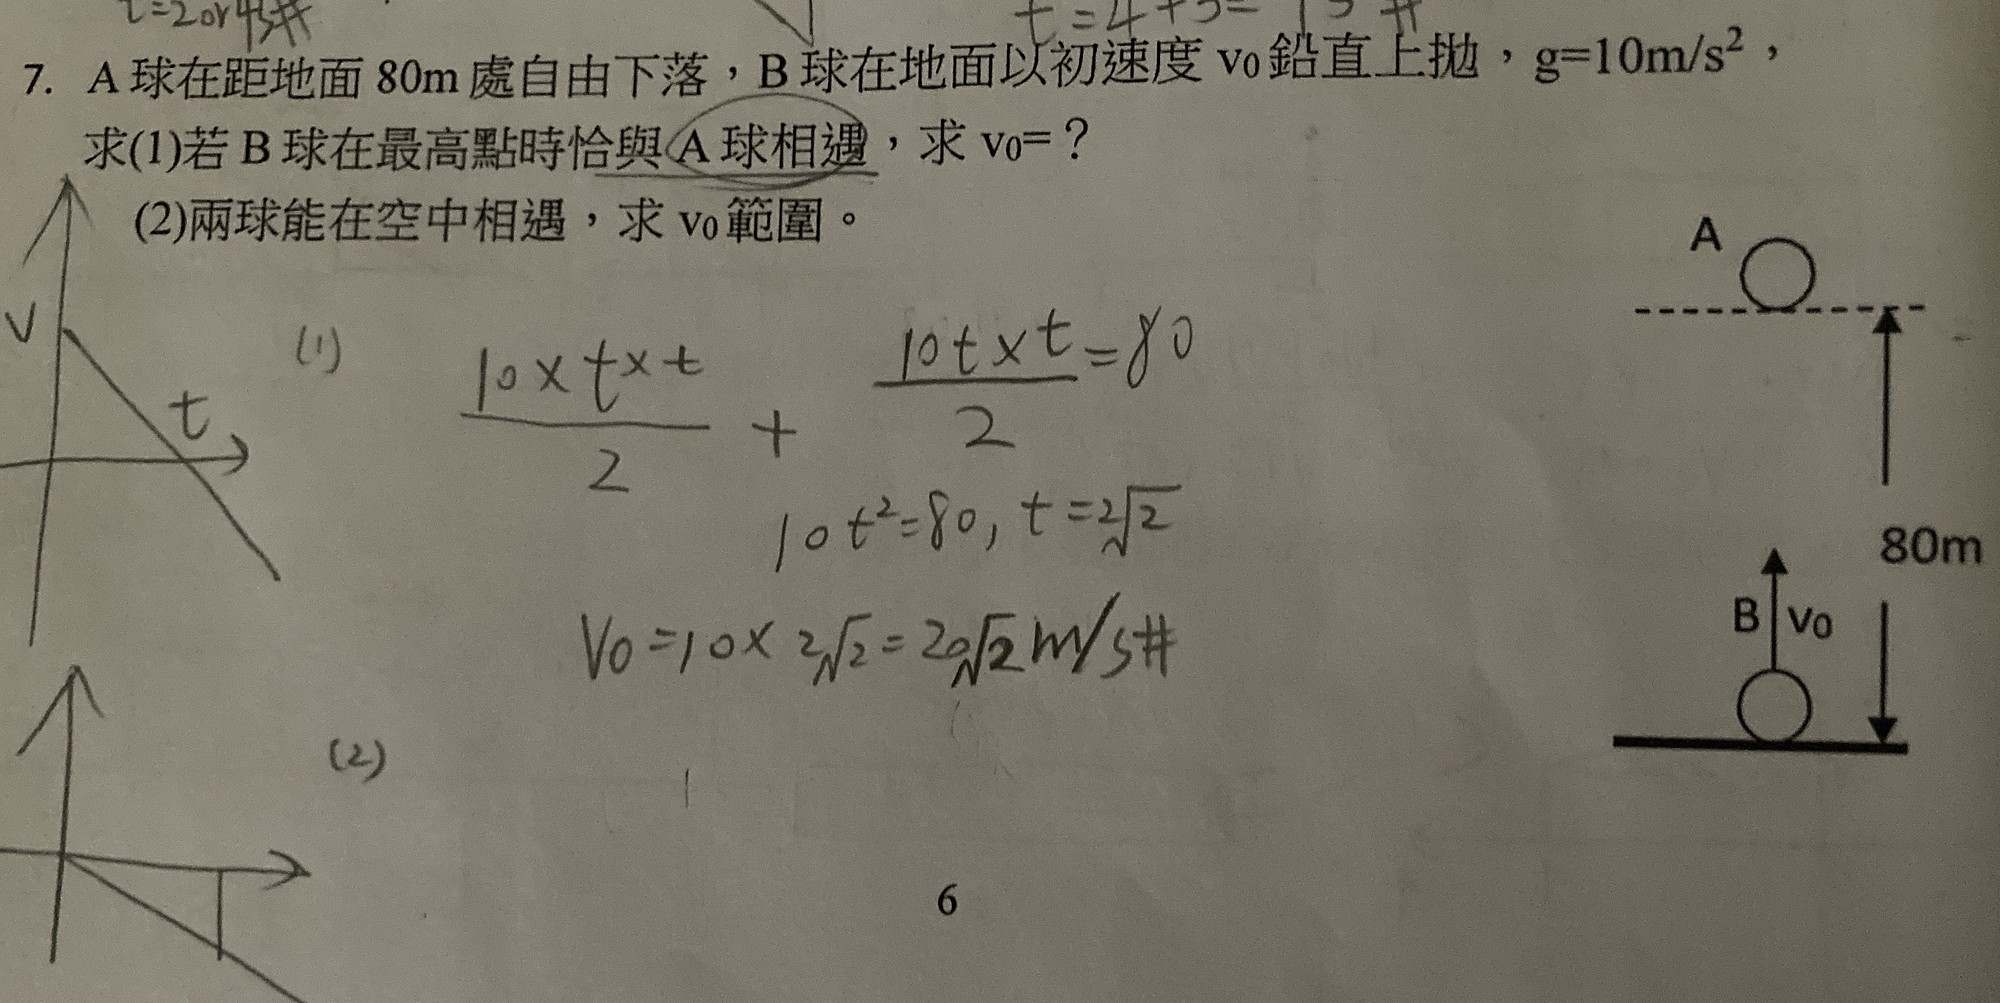 t=2or4s#
t=4+
7. A球在距地面80m處自由下落，B球在地面以初速度v₀鉛直上拋，g=10m/s²，
求(1)若B球在最高點時恰與A球相遇，求v₀=？
(2)兩球能在空中相遇，求v₀範圍。
A
V
(1)
10×t×t/2 + 10t×t/2=80
t
10t²=80, t=2√2
80m
B v₀
V₀=10×2√2=20√2m/s#
(2)
6